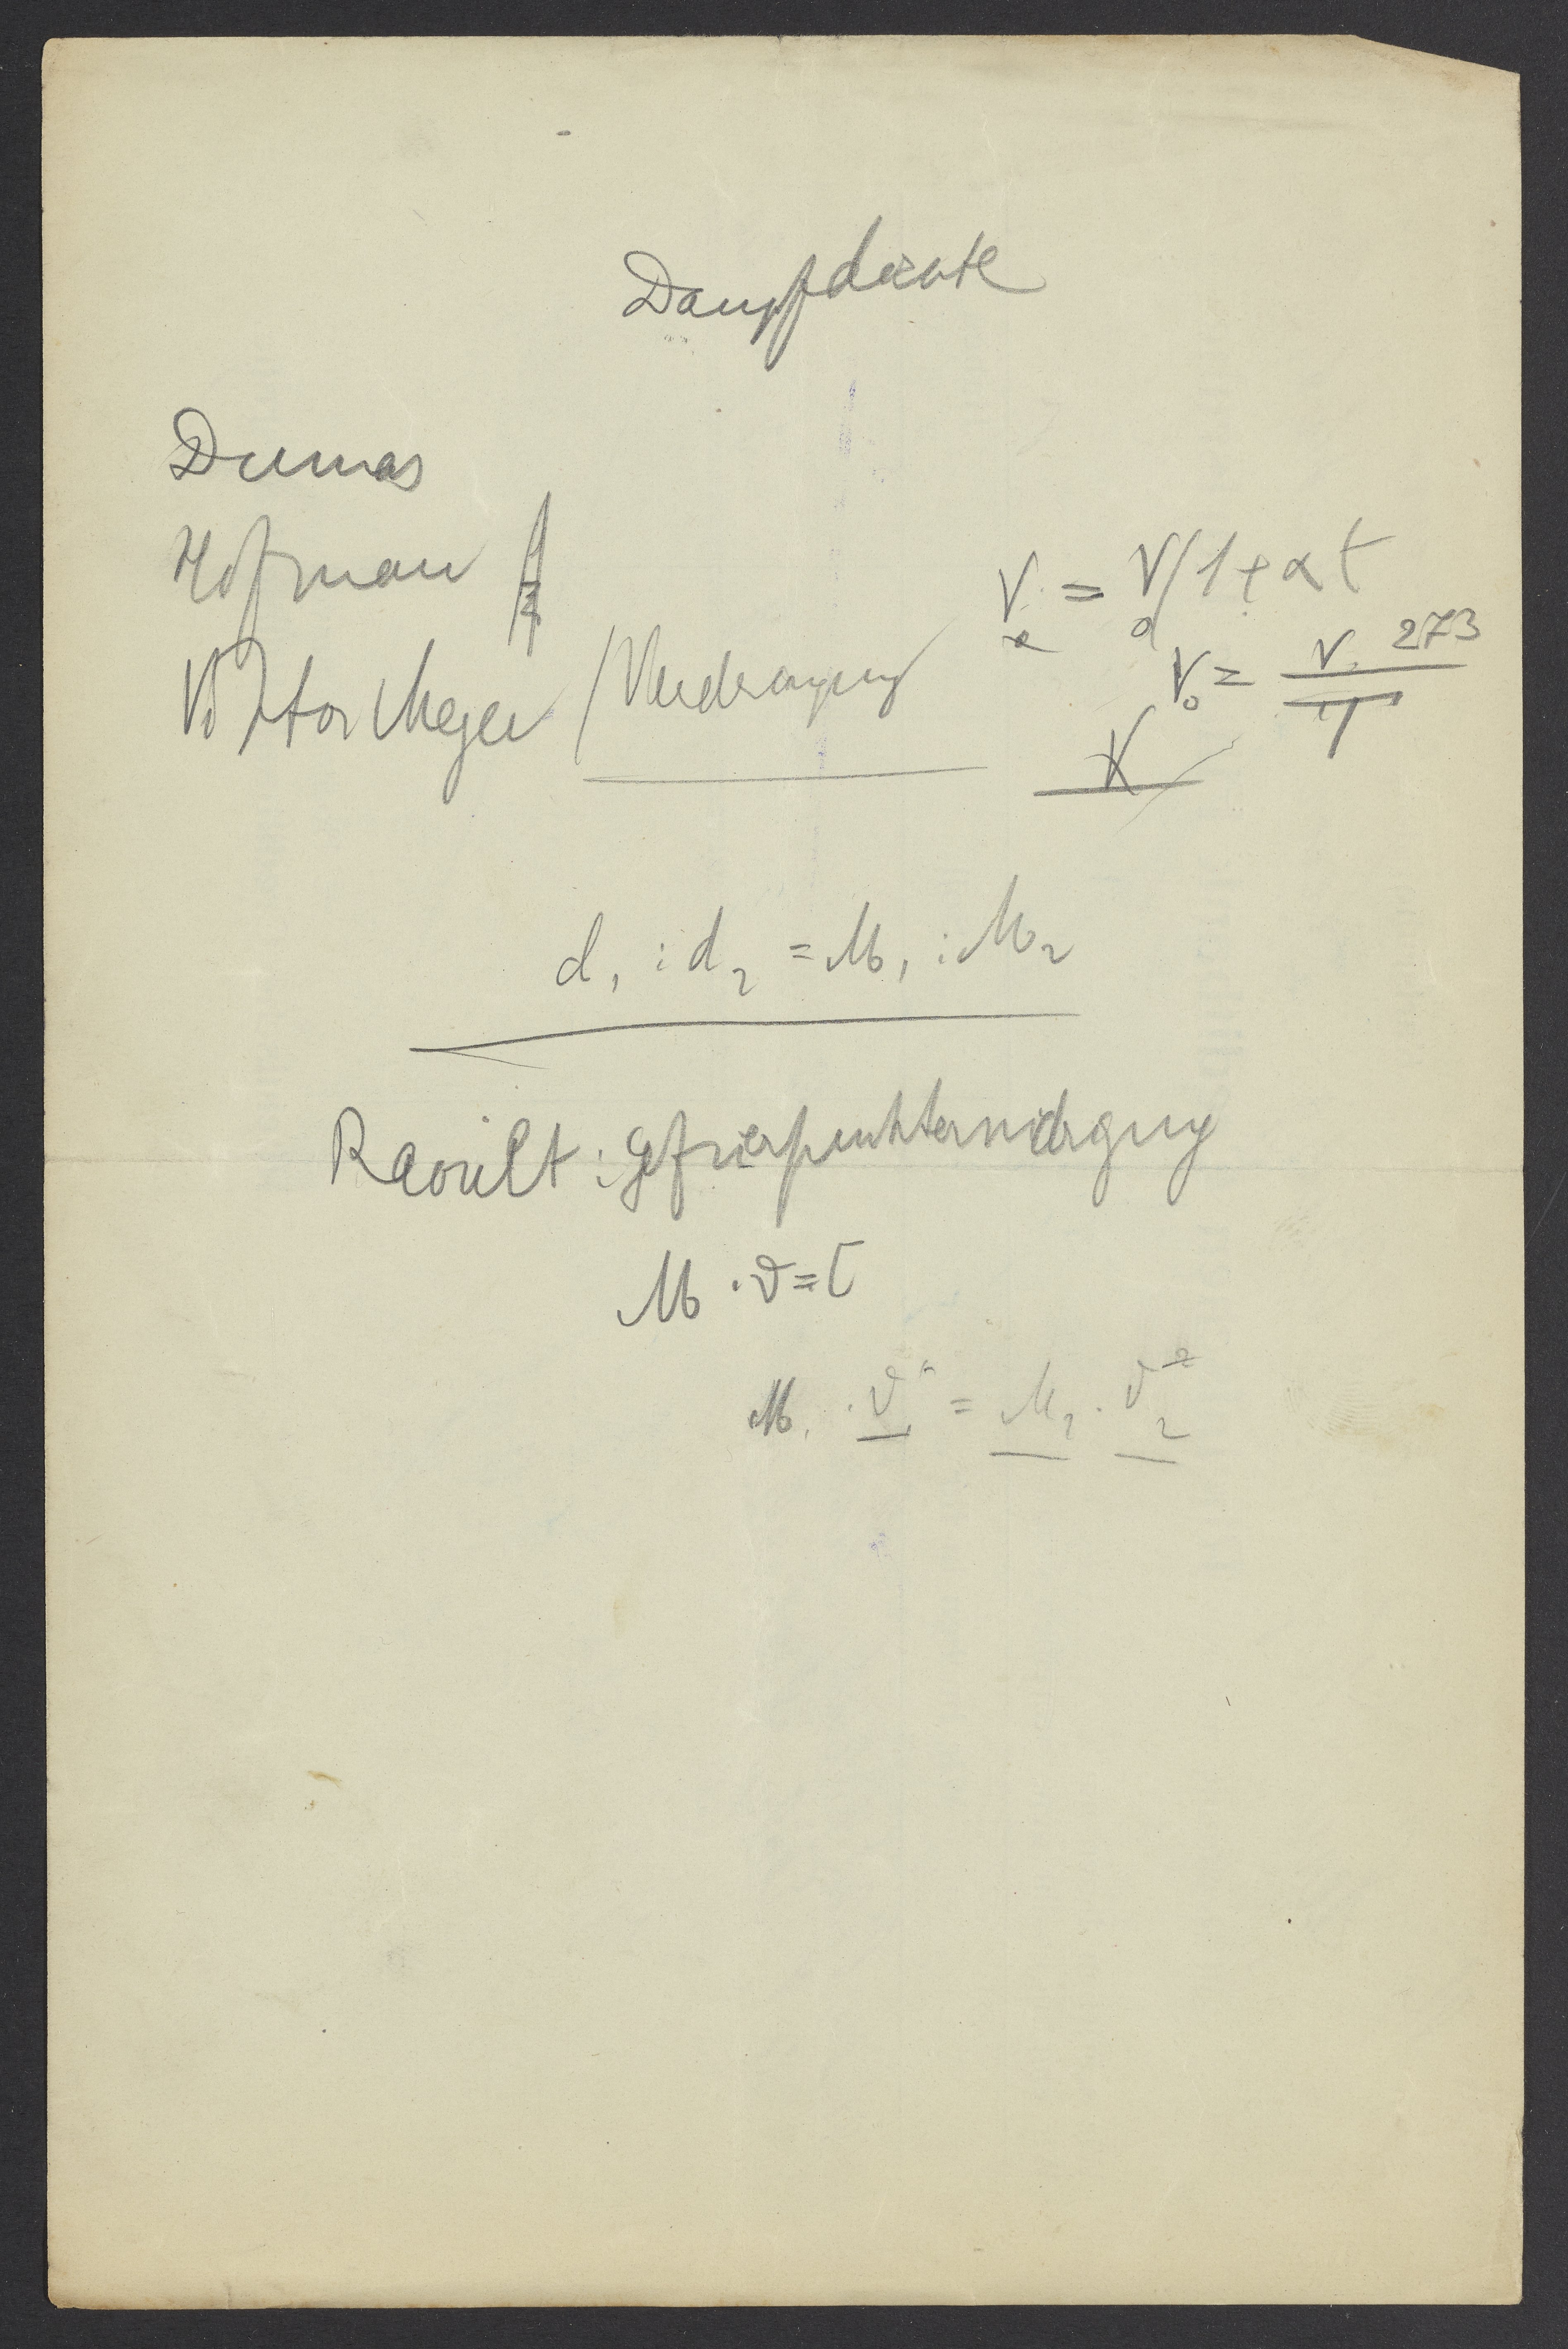 Dampfdichte
Dumas
Hofman
Viktor Meyer / Verdrängung
V = V₀(1+αt
V₀ = V. 273 / T
d₁ : d₂ = M₁ : M₂
Raoult : Gefrierpunkterniedrigung
M . ϑ = C
M₁ . ϑ₁ = M₂ . ϑ₂